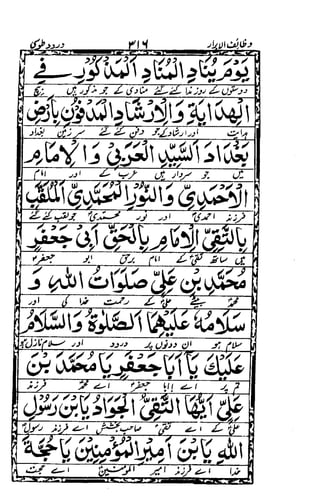 وظائف الابرار ٣١٦ درود طوسی
يَوْمَ يُنَادِ الْمُنَادِ الْمَذْكُورِ فِي
دوستوں کے روز ندا کئے گئے منادی کے جو مذکور ہیں بیچ
الْهِدَايَةِ وَالْاِرْشَادِ الْمَدْفُوْنِ بِاَرْضِ
ہدایت اور ارشاد کے جو دفن کئے گئے سرزمین بغداد
بَغْدَادَ السَّيِّدِ الْعَرَبِيِّ وَالْاِمَامِ
میں جو سردار ہیں عرب کے اور امام
الْاَحْمَدِيِّ وَالنُّوْرِ الْمُحَمَّدِيِّ الْمُلَقَّبِ
فرزند احمدی اور نور محمدی جو لقب کئے گئے
بِالتَّقِيِّ الْاِمَامِ بِالْحَقِّ اَبِيْ جَعْفَرٍ
ہیں ساتھ تقی کے امام برحق ابو جعفر
مُحَمَّدِ بْنِ عَلِيٍّ صَلَوَاتُ اللهِ وَ
محمد بیٹے علی کے رحمت خدا کی اور
سَلَامُهُ عَلَيْهِمَا الصَّلٰوةُ وَالسَّلَامُ
سلام ہو ان دونوں پر درود اور سلام نازل ہو
عَلَيْكَ يَا اَبَا جَعْفَرٍ يَا مُحَمَّدَ بْنَ
تم پر اے ابا جعفر اے محمد فرزند
عَلِيٍّ اَيُّهَا التَّقِيُّ الْجَوَادُ يَا بْنَ رَسُوْلِ
علی کے اے تقی صاحب بخشش اے فرزند رسول
اللهِ يَا بْنَ اَمِيْرِ الْمُؤْمِنِيْنَ يَا حُجَّةَ
خدا اے فرزند امیر المومنین اے حجت